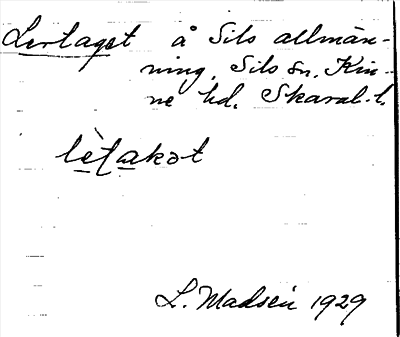 Lertaget å Sils allmän-
ning, Sils sn. Kin-
ne hd. Skarab. l.
lèt̯akət
L. Madsén 1929